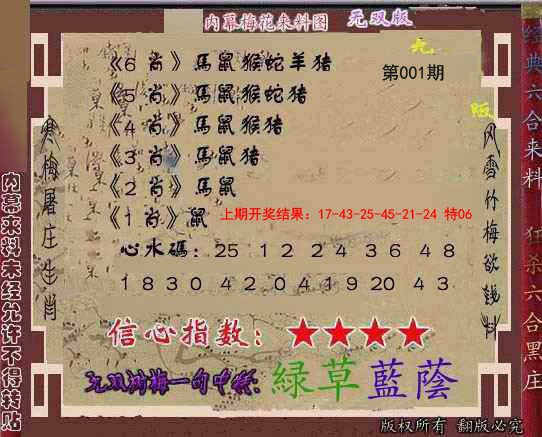 内幕梅花来料图 无双版
第001期
《6 肖》馬鼠猴蛇羊猪
《5 肖》馬鼠猴蛇猪
《4 肖》馬鼠猴猪
《3 肖》馬鼠猪
《2 肖》馬鼠
《1 肖》鼠
上期开奖结果：17-43-25-45-21-24 特06
心水碼：25 12 24 36 48
18 30 42 04 19 20 43
信心指数：★★★★
綠草藍蔭
版权所有 翻版必究
内幕来料未经允许不得转贴
寒梅屠庄生肖
风雪竹梅欲钱料
经典六合来料
狂杀六合黑庄